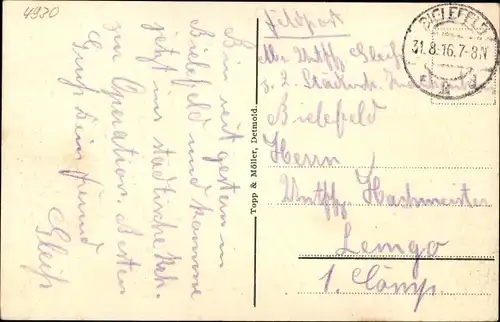 4930
Bin seit gestern in
Bielefeld und komme
jetzt ins städtische Krh.
zur Operation. Besten
Gruß Dein Freund
Gleiß
Topp & Möller, Detmold.
Feldpost
BIELEFELD
31.8.16.7-8N
Abs. Untffz. Gleiß
z. Z. Städtisch.
Bielefeld
Herrn
Untffz. Hachmeister
Lemgo
1. Comp.